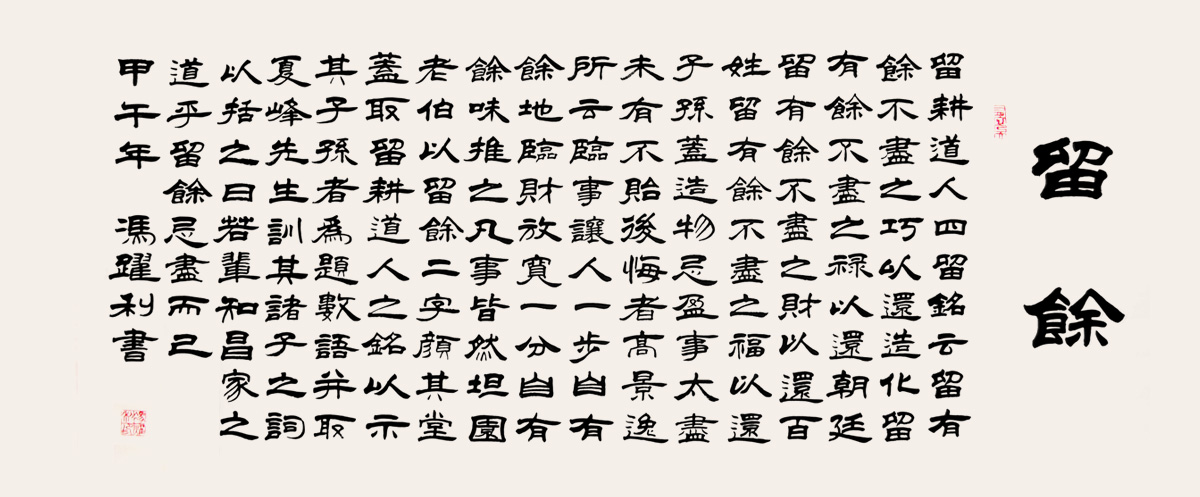 留餘
留耕道人四留銘云留有
餘不盡之巧以還造化留
有餘不盡之禄以還朝廷
留有餘不盡之財以還百
姓留有餘不盡之福以還
子孫蓋造物忌盈事太盡
未有不貽後悔者高景逸
所云臨事讓人一步自有
餘地臨財放寬一分自有
餘味推之凡事皆然坦園
老伯以留餘二字顏其堂
蓋取留耕道人之銘以示
其子孫者爲題數語并取
夏峰先生訓其諸子之詞
以括之曰若輩知昌家之
道乎留餘忌盡而已
甲午年 馮躍利書